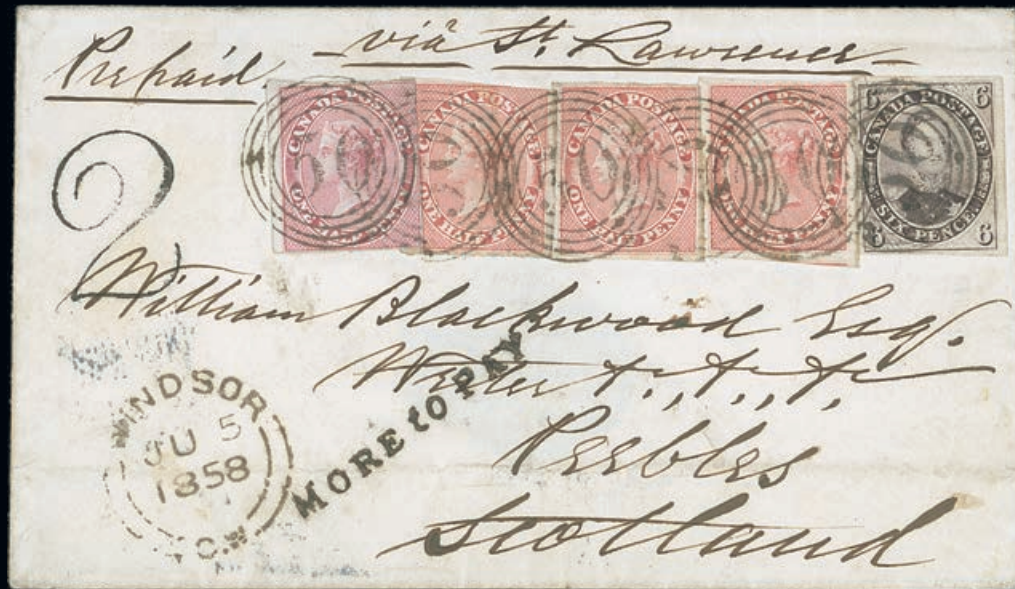 Prepaid - via St. Lawrence -
CANADA POSTAGE ONE HALF PENNY
CANADA POSTAGE ONE HALF PENNY
CANADA POSTAGE ONE HALF PENNY
CANADA POSTAGE ONE HALF PENNY
6 CANADA POSTAGE 6
6 SIX PENCE 6
2
William Blackwood Esq.
Peebles
Scotland
MORE to PAY
WINDSOR
JU 5
1858
C.W